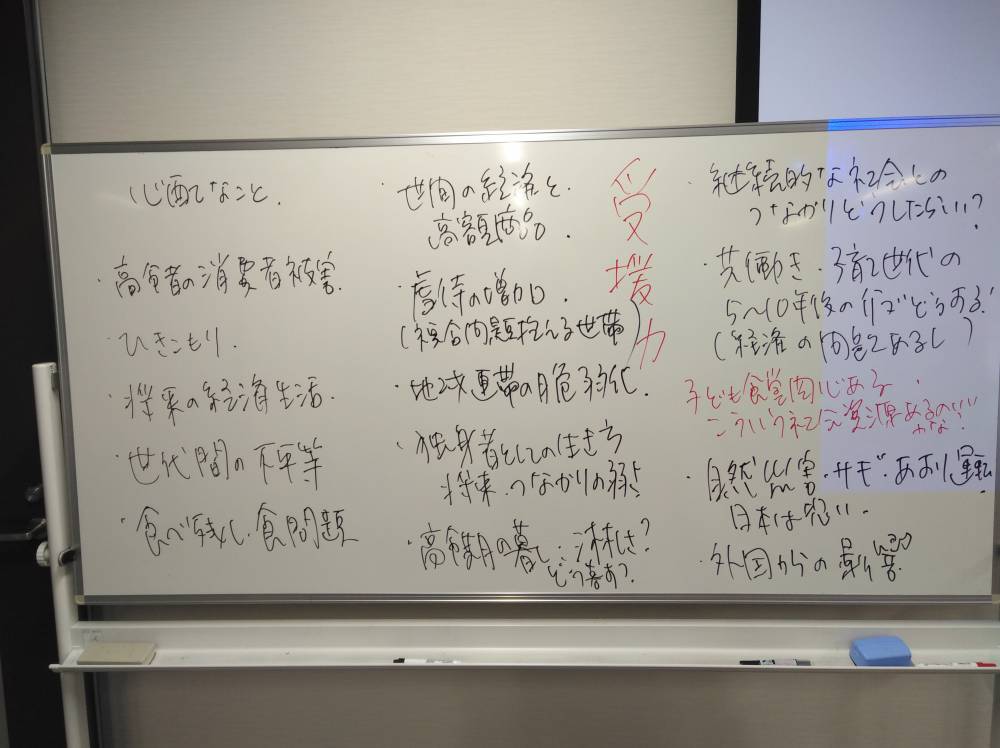 心配なこと。
・高齢者の消費者被害.
・ひきこもり.
・将来の経済生活.
・世代間の不平等
・食べ残し.食問題
・世間の経済と
高額商品.
・虐待の増加.
(複合問題抱える世帯)
・地域連帯の脆弱化.
・独身者としての生き方
将来.つながりの弱さ
・高齢期の暮し:淋しさ?
どう暮す?
受援力
・継続的な社会との
つながりどうしたらいい?
・共働き.子育て世代の
5〜10年後の介ゴどうする!
(経済の問題もあるし)
子ども食堂関心ある.
こういう社会資源あるの!!
かな?
・自然災害・サギ・あおり運転
日本は弱い.
・外国からの